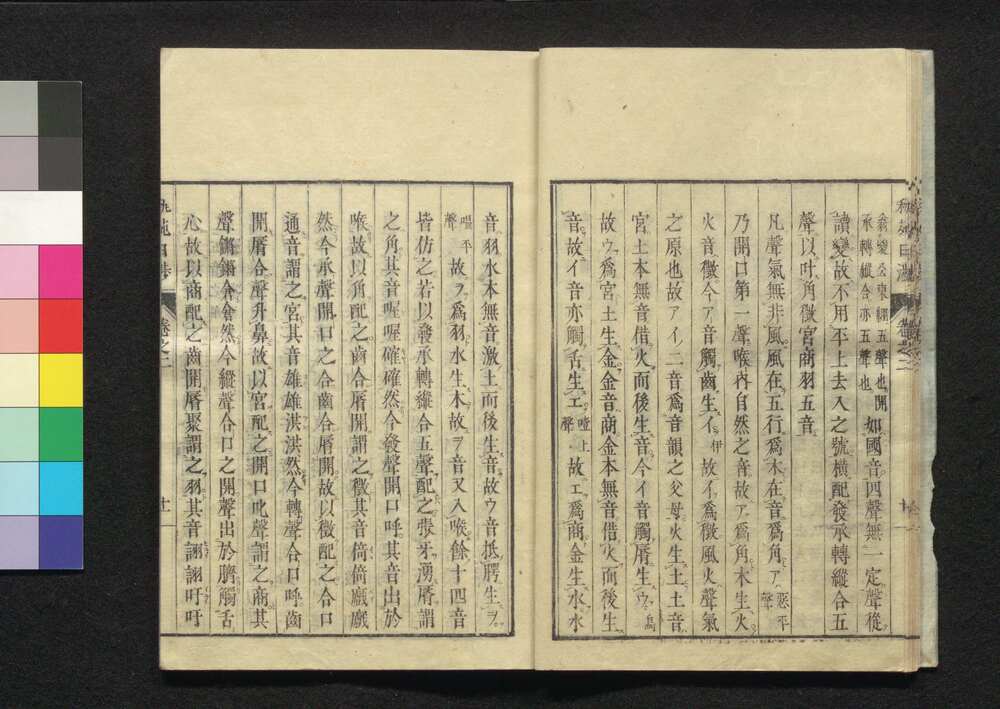 翕變公東翻五聲也開
承轉縱合亦五聲也如國音四聲無一定聲從
讀變故不用平上去入之號橫配發承轉縱合五
聲以叶角徵宮商羽五音
凡聲氣無非風風在五行爲木在音爲角ア惡平聲
乃開口第一聲喉內自然之音故ア爲角木生火
火音徵今ア音觸齒生イ伊故イ爲徵風火聲氣
之原也故アイ二音爲音韻之父母火生土土音
宮土本無音借火而後生音今イ音觸脣生ウ烏
故ウ爲宮土生金金音商金本無音借火而後生
音故イ音亦觸舌生エ噎上聲故エ爲商金生水水
音羽水本無音激土而後生音故ウ音抵腭生ヲ
嗢平聲故ヲ爲羽水生木故ヲ音又入喉餘十四音
皆仿之若以發承轉縱合五聲配之張牙湧脣謂
之角其音喔喔確確然今發聲開口呼其音出於
喉故以角配之齒合脣開謂之徵其音倚倚戲戲
然今承聲開口之合齒合脣開故以徵配之合口
通音謂之宮其音雄雄洪洪然今轉聲合口呼齒
開脣合聲升鼻故以宮配之開口叱聲謂之商其
聲鏘鏘倉倉然今縱聲合口之開聲出於臍觸舌
心故以商配之齒開脣聚謂之羽其音詡詡吁吁
卷之二
十一